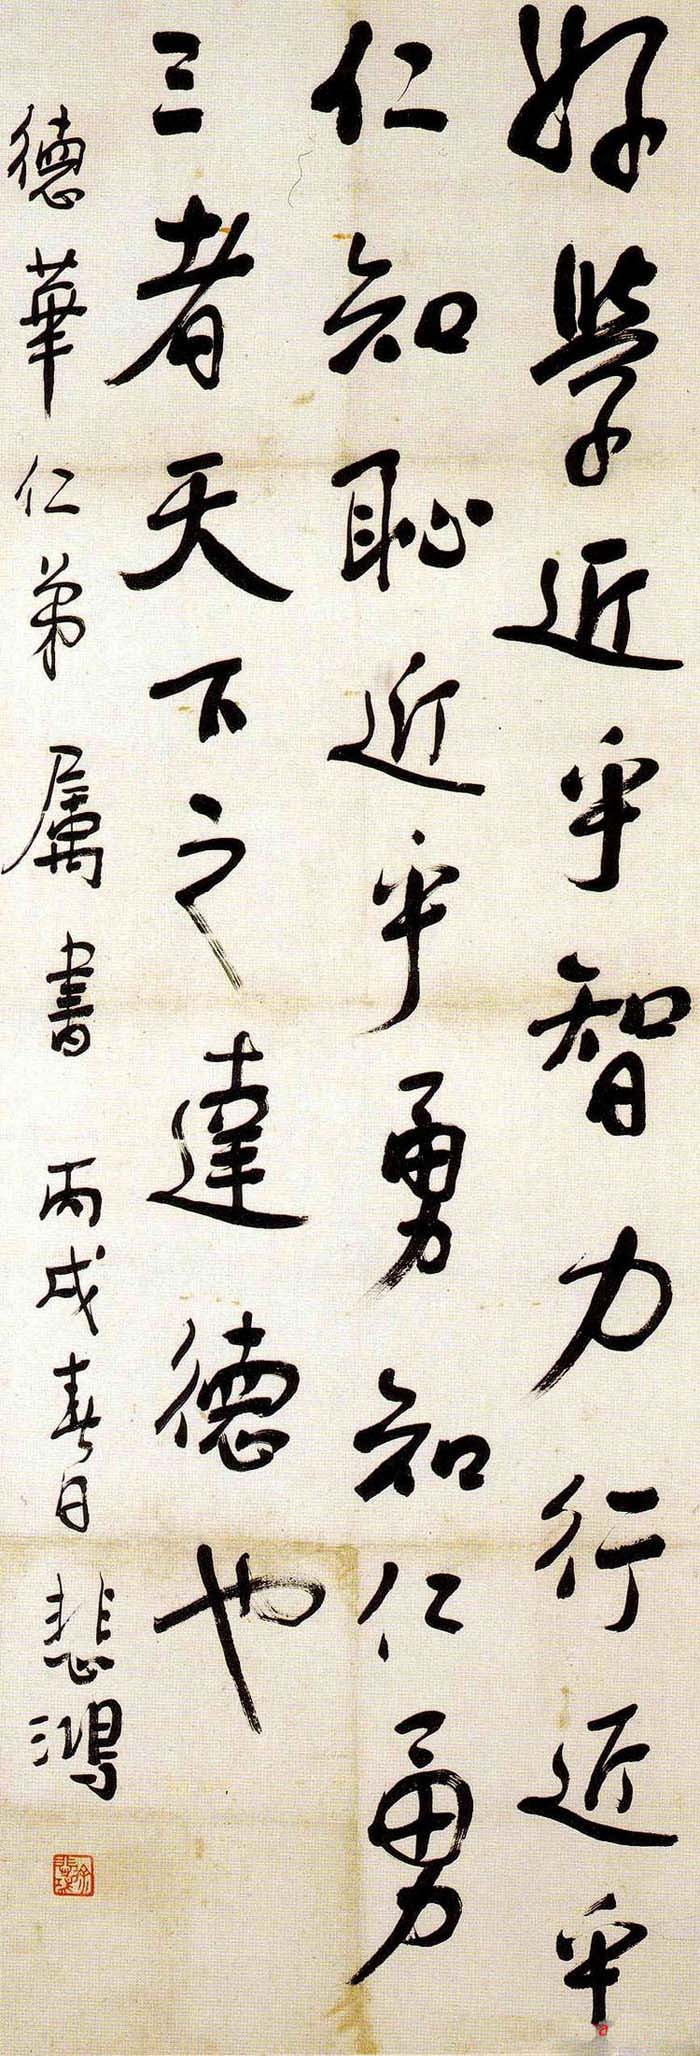 好學近乎智力行近乎
仁知恥近乎勇知仁勇
三者天下之達德也
德華仁弟屬書 丙戌春日 悲鴻
徐悲鴻